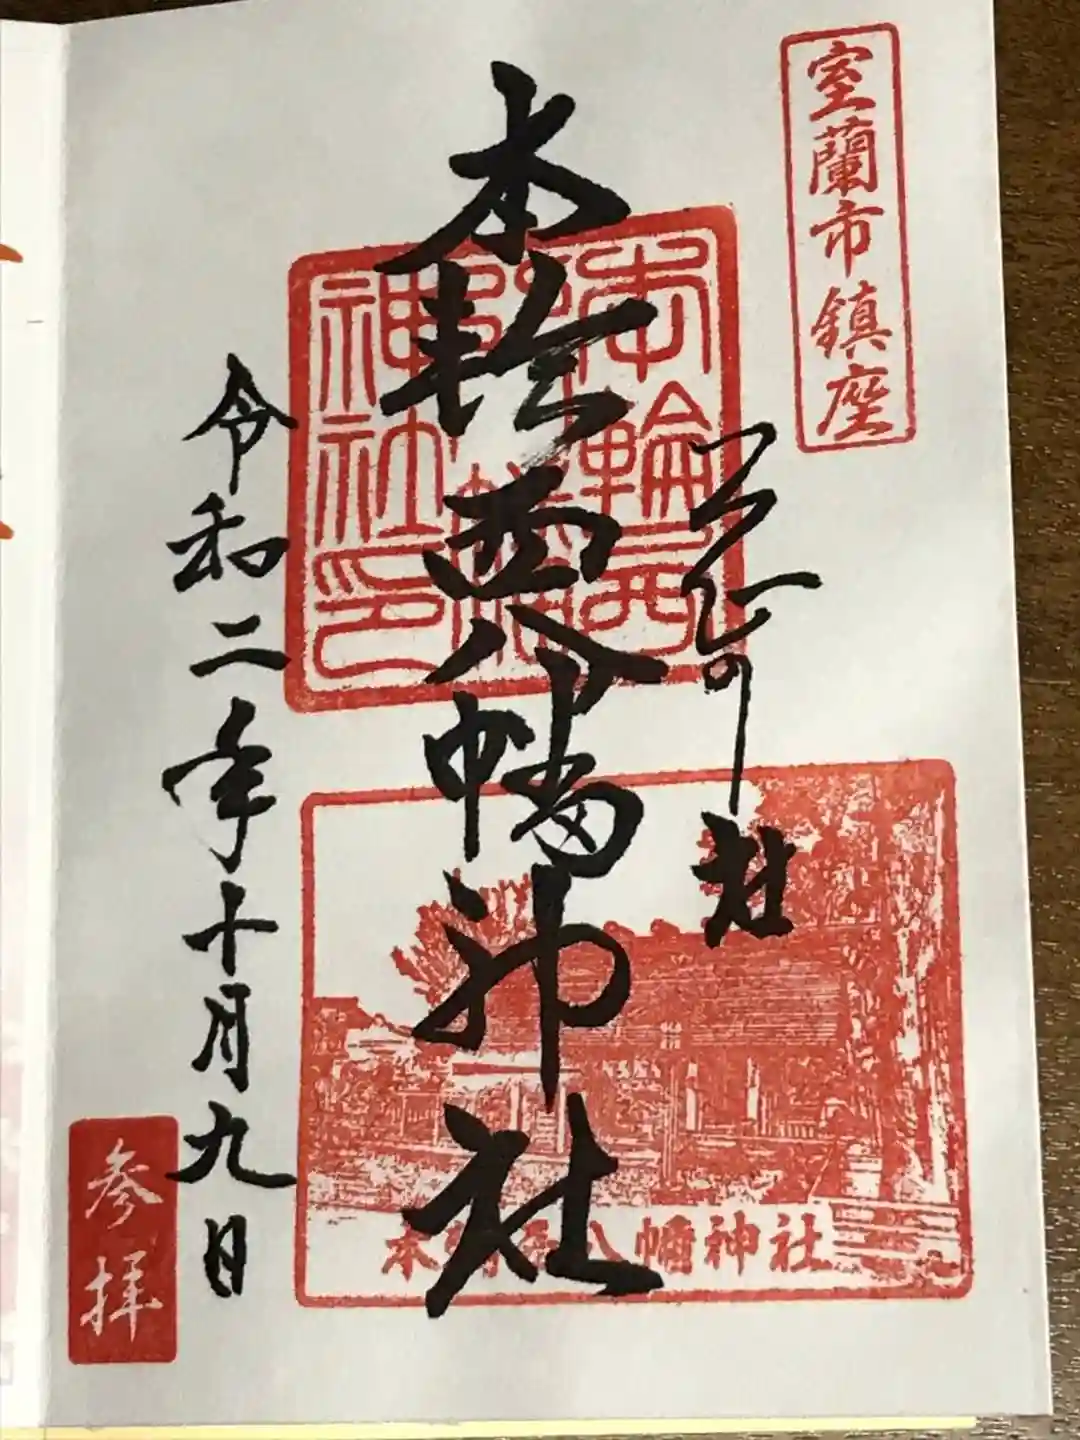 室蘭市鎮座
の社
本輪西八幡神社
本輪西
八幡
神社印
本輪西八幡神社
令和二年十月九日
参拝